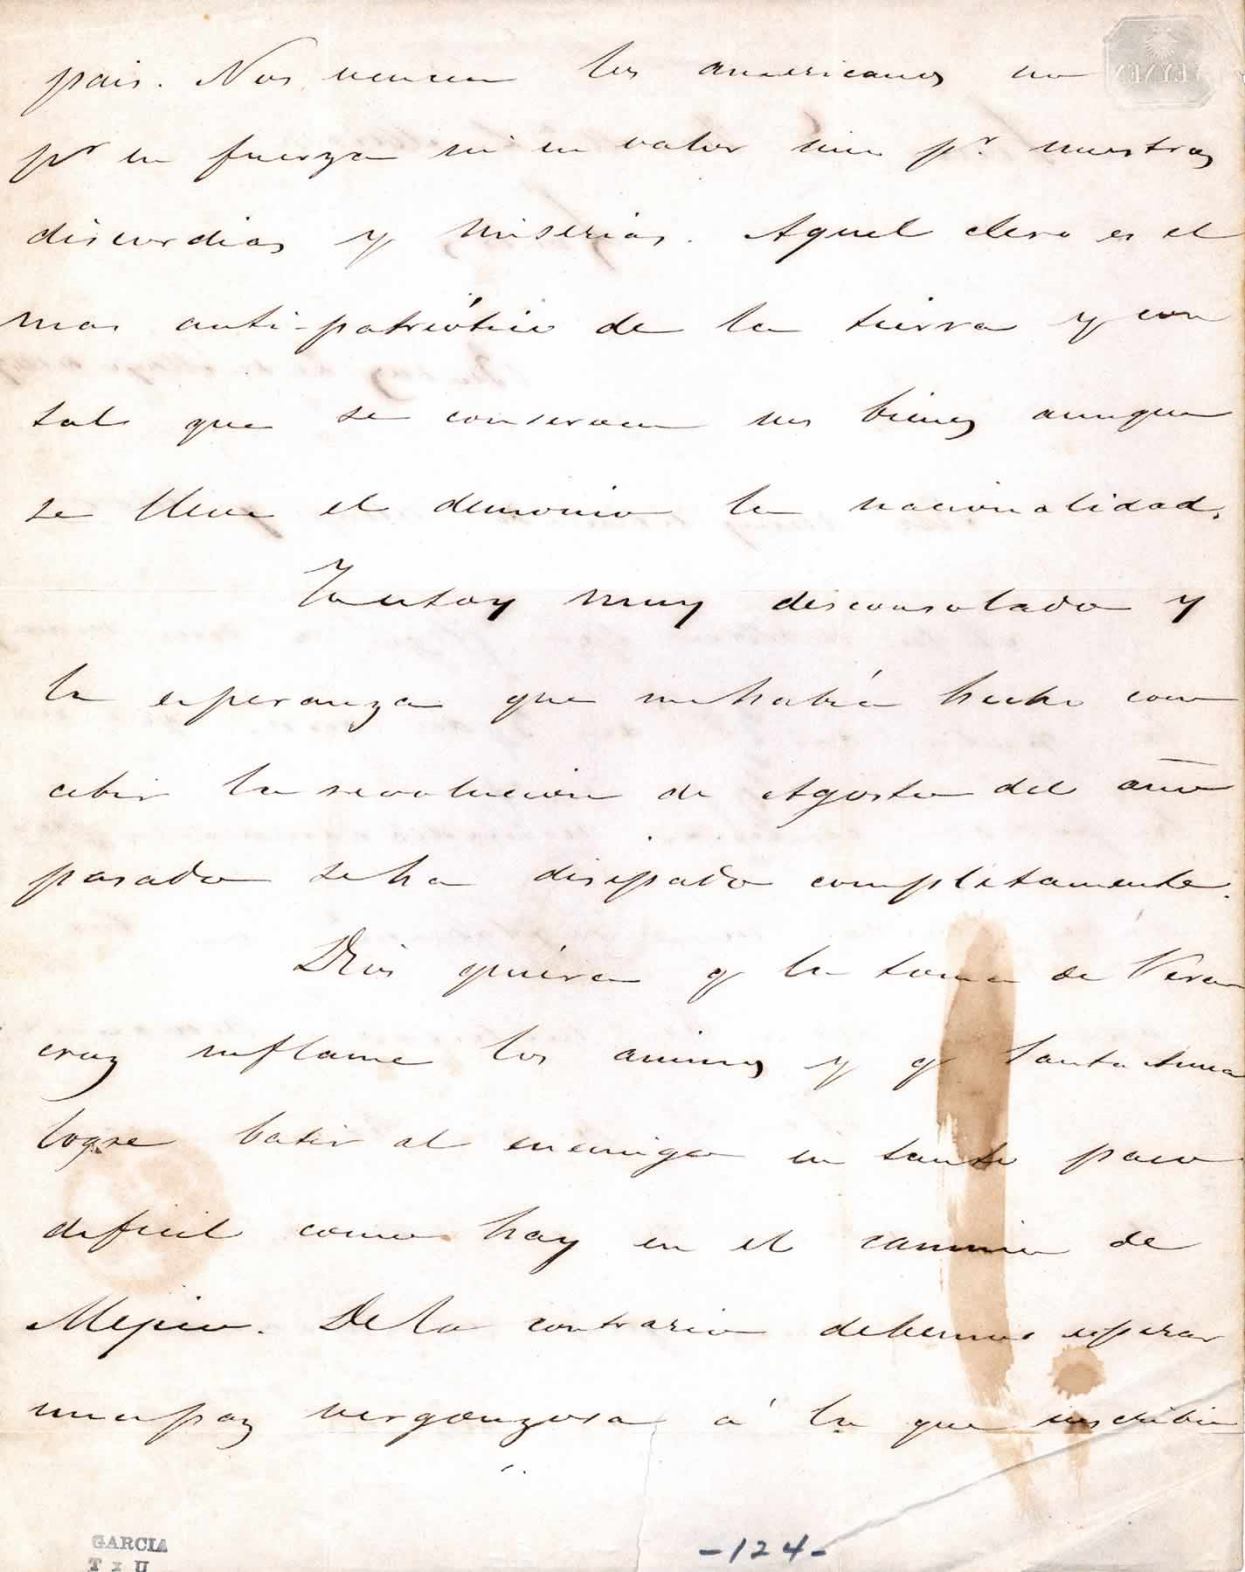 pais. Nos vencen los americanos no
pr su fuerza ni su valor sino pr. nuestras
discordias y miserias. Aquel clero es el
mas anti-patriótico de la tierra y con
tal que se conserven sus bienes aunque
se lleve el demonio la nacionalidad.
Yo estoy muy desconsolado y
la esperanza que me había hecho con
cebir la revolucion de Agosto del año
pasado se ha disipado completamente.
Dios quiera q la toma de Vera
cruz inflame los animos y q Santa Anna
logre batir al enemigo en tanto paso
dificil como hay en el camino de
Mejico. De lo contrario debemos esperar
una paz vergonzosa á la que
GARCIA
T x U
-124-